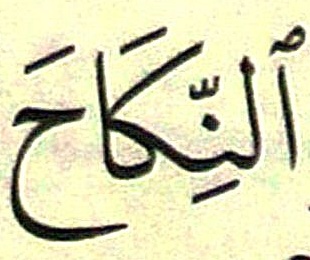 ٱلنِّكَاحَ